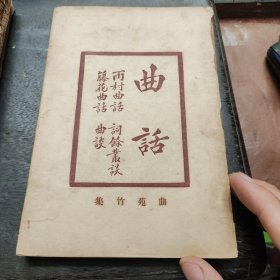 曲話
雨村曲話
詞餘叢談
藤花曲話
曲談
曲苑竹集